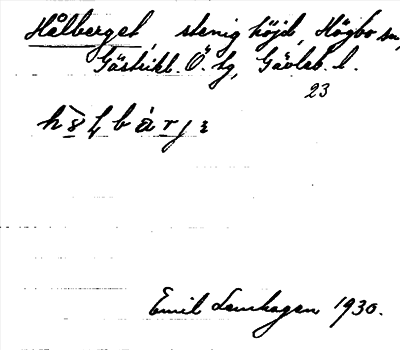 Hålberget, stenig höjd, Högbo sn,
Gästrikl. Ö. tg, Gävleb. l.
23
Emil Lamhagen 1930.